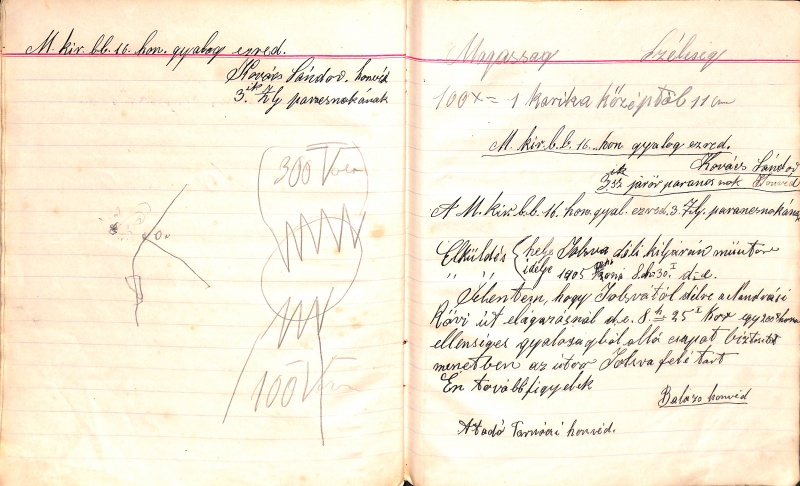 M. kir. b.b. 16. hon. gyalog ezred.
Kovács Sándor. honvéd
3. ik zlj parancsnokának
300 V
100 V
Magasság Szélesség
100x = 1 karika középtől 11 cm
M. kir. b.b. 16. hon gyalog ezred.
Kovács Sándor
3 ik sz járőr parancsnok honvéd
A M. kir. b.b. 16. hon. gyal. ezred. 3. zlj. parancsnokának
Elküldés helye Jolsva déli kijárán
" " ideje 1905 8 h 30. I d-e.
Jelentem, hogy Jolsvától délre a
Kövi út elágazásnál d.e. 8. h 25 I kor egy 200
ellenséges gyalogságból álló csapat biztosított
menetben az úton Jolsva felé tart
Én tovább figyelek
Balázs honvéd
Átadó Tarnóczi honvéd.